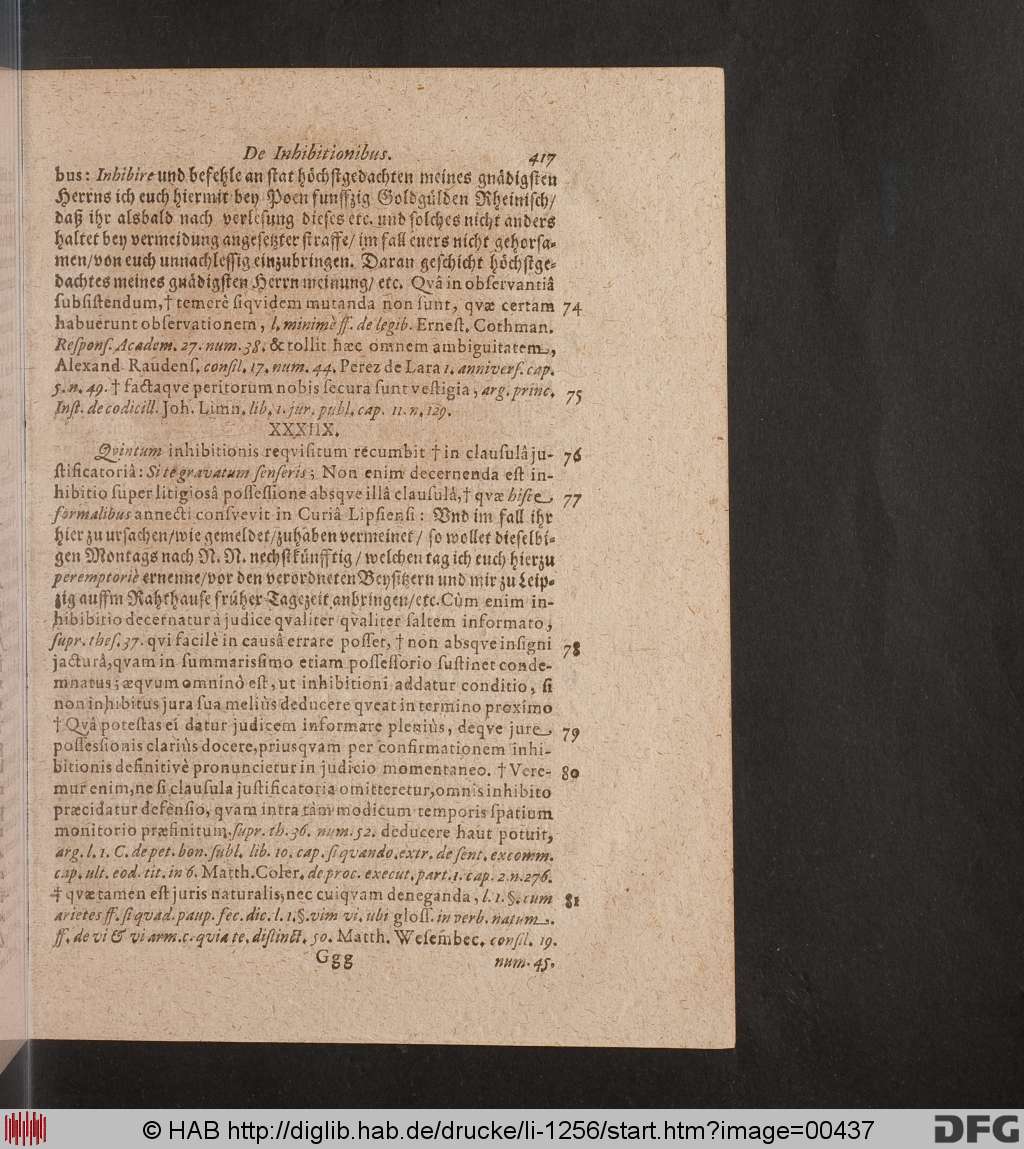 De Inhibitionibus. 417
bus: Inhibire und befehle an stat höchstgedachten meines gnädigsten
Herrns ich euch hiermit bey Poen funffzig Goldgülden Rheinisch/
daß ihr alsbald nach verlesung dieses etc. und solches nicht anders
haltet bey vermeidung angesetzter straffe/ im fall euers nicht gehorsa-
men/ von euch unnachlessig einzubringen. Daran geschicht höchstge-
dachtes meines gnädigsten Herrn meinung/ etc. Qvâ in observantiâ
subsistendum, † temerè siqvidem mutanda non sunt, qvæ certam 74
habuêrunt observationem, l. minimè ff. de legib. Ernest. Cothman.
Respons. Academ. 27. num. 38. & tollit hæc omnem ambiguitatem,
Alexand. Raudens. consil. 17. num. 44. Perez de Lara 1. anniversf. cap.
5. n. 49. † factaqve peritorum nobis secura sunt vestigia, arg. princ. 75
Inst. de codicill. Joh. Limn. lib. 1. jur. publ. cap. 11. n. 129.
XXXIIX.
Qvintum inhibitionis reqvisitum recumbit † in clausulâ ju- 76
stificatoriâ: Si te gravatum senseris; Non enim decernenda est in-
hibitio super litigiosâ possessione absqve illâ clausulâ, † qvæ hisce 77
formalibus annecti consvevit in Curiâ Lipsiensi: Und im fall ihr
hier zu ursachen/ wie gemeldet/ zuhaben vermeinet/ so wollet dieselbi-
gen Montags nach N. N. nechstkünfftig/ welchen tag ich euch hierzu
peremptoriè ernenne/ vor den verordneten Beysitzern und mir zu Leip-
zig auffm Rahthause früher Tagezeit anbringen/ etc. Cùm enim in-
hibibitio decernatur à judice qvaliter qvaliter saltem informato,
supr. thes. 37. qvi facilè in causâ errare posset, † non absqve insigni 78
jacturâ, qvam in summarissimo etiam possessorio sustinet conde-
mnatus; æqvum omninò est, ut inhibitioni addatur conditio, si
non inhibitus jura sua meliùs deducere qveat in termino proximo
† Qvâ potestas ei datur judicem informare pleniùs, deqve jure 79
possessionis clariùs docere, priusqvam per confirmationem inhi-
bitionis definitivè pronuncietur in judicio momentaneo. † Vere- 80
mur enim, ne si clausula justificatoria omitteretur, omnis inhibito
præcidatur defensio, qvam intra tàm modicum temporis spatium
monitorio præfinitum. supr. th. 36. num. 52. deducere haut potuit,
arg. l. 1. C. de pet. bon. subl. lib. 10. cap. si quando. extr. de sent. excomm.
cap. ult. eod. tit. in 6. Matth. Coler. de proc. execut. part. 1. cap. 2. n. 276.
† qvæ tamen est juris naturalis, nec cuiqvam deneganda, l. 1. §. cum 81
arietes ff. si quad. paup. fec. dic. l. 1. §. vim vi. ubi gloss. in verb. natum.
ff. de vi & vi arm. c. quia te. distinct. 50. Matth. Wesembec. consil. 19.
Ggg num. 45.
© HAB http://diglib.hab.de/drucke/li-1256/start.htm?image=00437
DFG